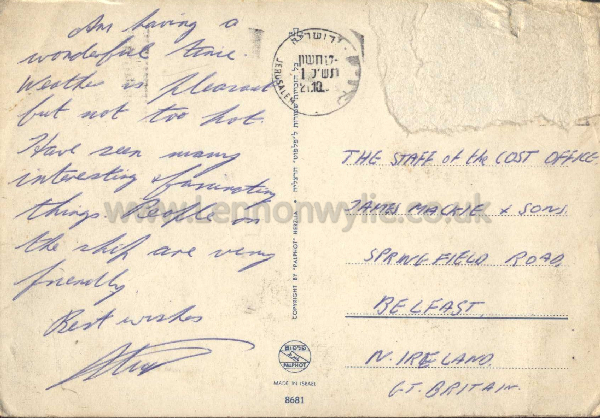 Am having a
wonderful time.
Weather is pleasant
but not too hot.
Have seen many
interesting & fascinating
things. People on
the ship are very
friendly
Best wishes
ירושלים
JERUSALEM
COPYRIGHT BY "PALPHOT" HERZLIA
THE STAFF of the COST OFFICE
JAMES MACKIE & SONS.
SPRINGFIELD ROAD,
BELFAST,
N. IRELAND,
GT. BRITAIN.
PALPHOT
MADE IN ISRAEL
8681
www.Lennonwylie.co.uk